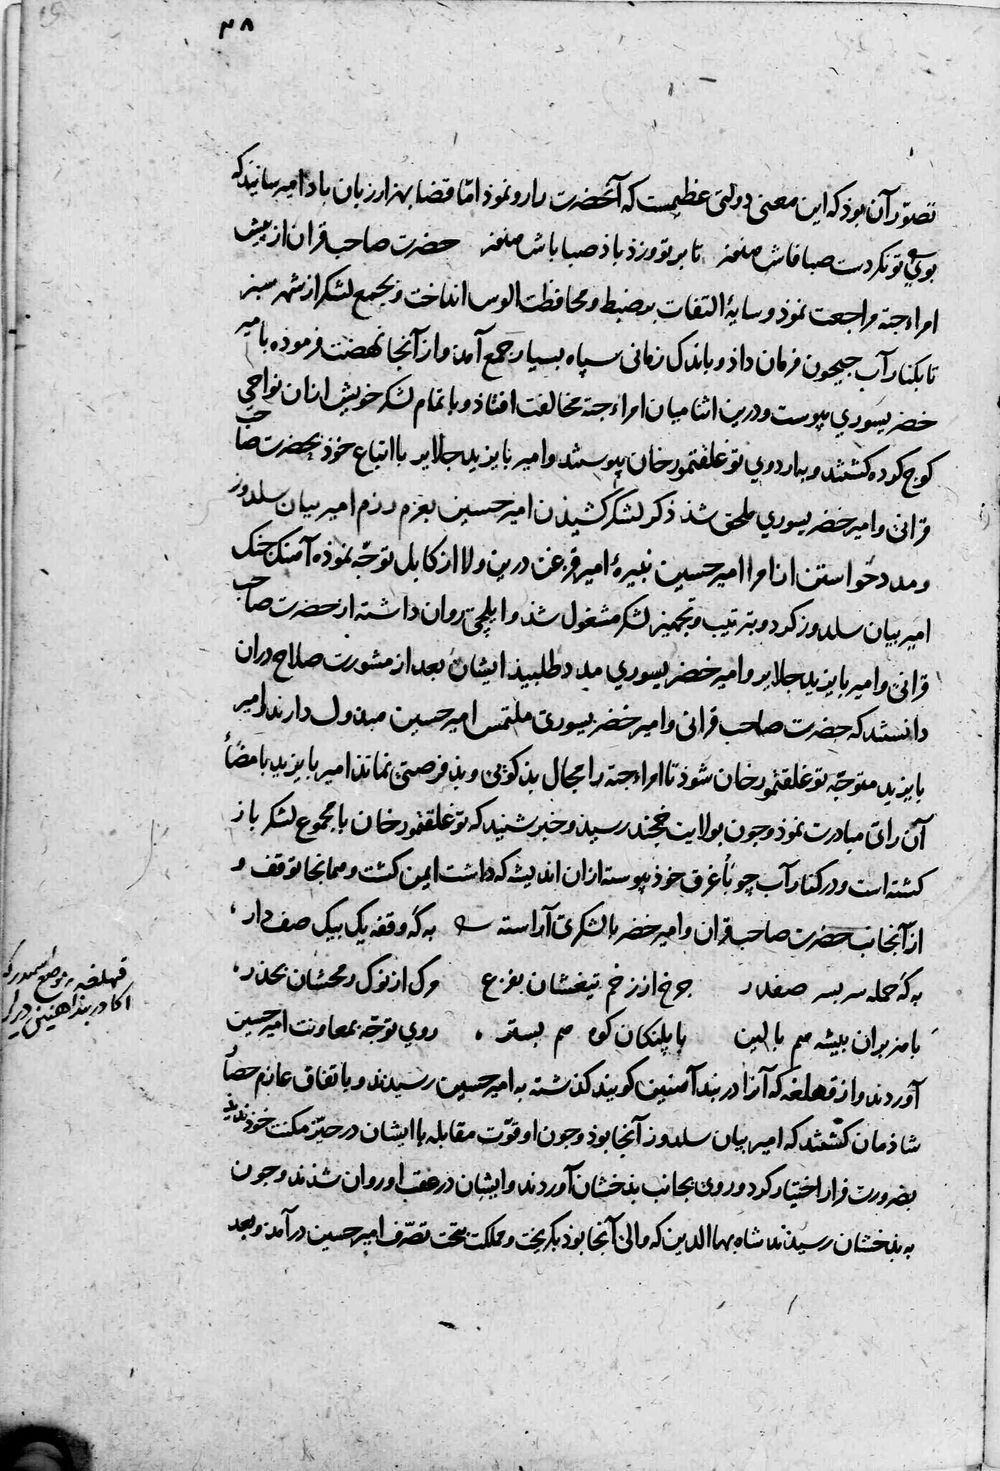 ۳۸
تصوّر آن بوذ که این معنی دولتی عظیمست که آنحضرت را رو نموذ امّا قضا بهزار زبان باد امیرسانید که
بوی تو نکردست صبا فاش هنوز تا بر تو وزذ باذ صبا باش هنوز حضرت صاحب قران از پیش
امراء جته مراجعت نموذ و سایهٔ التفات بر ضبط و محافظت الوس انداخت و بجمع لشکر از شهر سبز
تا بکنار آب جیحون فرمان داذ و باندک زمانی سپاه بسیار جمع آمد و از آنجا نهضت فرموذه بامیر
خضر یسوری پیوست و درین اثنا میان امراء جته مخالفت افتاذ و با تمام لشکر خویش ازان نواحی
کوچ کرده کشتند و باردوی توغلقتمور خان پیوستند و امیر بایزید جلایر با اتباع خوذ بحضرت صاحب
قرانی و امیر خضر یسوری ملحق شذ ذکر لشکر کشیدن امیر حسین بعزم رزم امیر بیان سلدوز
و مدد خواستن از امرا امیر حسین نبیرهٔ امیر قزغن درین ولا از کابل توجّه نموذه آهنک جنک
امیر بیان سلدوز کرد و بترتیب و تجهیز لشکر مشغول شذ و ایلچی روان داشته از حضرت صاحب
قرانی و امیر بایزید جلایر و امیر خضر یسوری مدد طلبیذ ایشان بعد از مشورت صلاح دران
دانستند که حضرت صاحب قرانی و امیر خضر یسوری ملتمس امیر حسین مبذول دارند و امیر
بایزید متوجّه توغلقتمور خان شوذ تا امراء جته را مجال بذکویی و بذ فرصتی نماند امیر بایزید بامضاء
آن رای مبادرت نموذ و چون بولایت خجند رسید و خبر شنید که توغلقتمور خان با مجموع لشکر باز
کشته است و در کنار آب چو بأغرق خوذ پیوسته ازان اندیشه که داشت ایمن کشت و همانجا توقف و
از آنجانب حضرت صاحب قران و امیر خضر با لشکری آراسته به که وقفه یک بیک صف دار
به که حمله سر بسر صفدر چرخ از زخم تیغشان بفزع مرک از نوک رمحشان بحذر
با هزبران بیشه هم بالین با پلنکان کوه هم بستر روی توجّه بمعاونت امیر حسین
آوردند و از قهلغه که آنرا دربند آهنین کویند کذشته به امیر حسین رسیدند و باتفاق عازم حصار
شاذمان کشتند که امیر بیان سلدوز آنجا بوذ و چون او قوّت مقابله با ایشان در حیّز مکنت خوذ ندید
بضرورت فرار اختیار کرد و روی بجانب بدخشان آوردند و ایشان در عقب او روان شذند و چون
به بدخشان رسیدند شاه بها الدین که والی آنجا بوذ بکریخت و مملکت بتحت تصرّف امیر حسین در آمد و بعد
قهلغه موضع
دربند آهنین